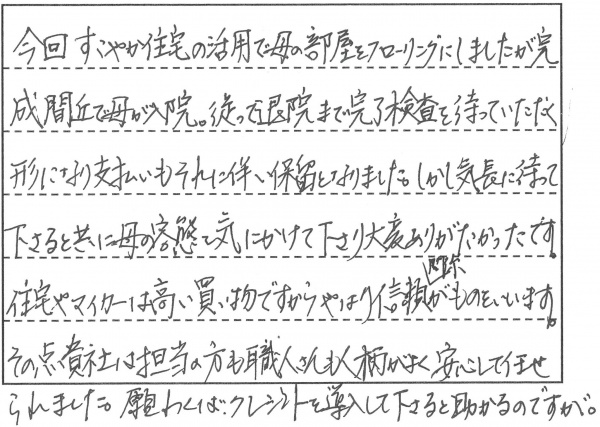 今回すこやか住宅の活用で母の部屋をフローリングにしましたが完
成間近で母が入院。従って退院まで完了検査を待っていただく
形になり支払いもそれに伴い保留となりました。しかし気長に待って
下さると共に母の容態を気にかけて下さり大変ありがたかったです。
住宅やマイカーは高い買い物ですからやはり信頼関係がものをいいます。
その点貴社は担当の方も職人さんも人柄がよく安心して任せ
られました。願わくば、クレジットを導入して下さると助かるのですが。